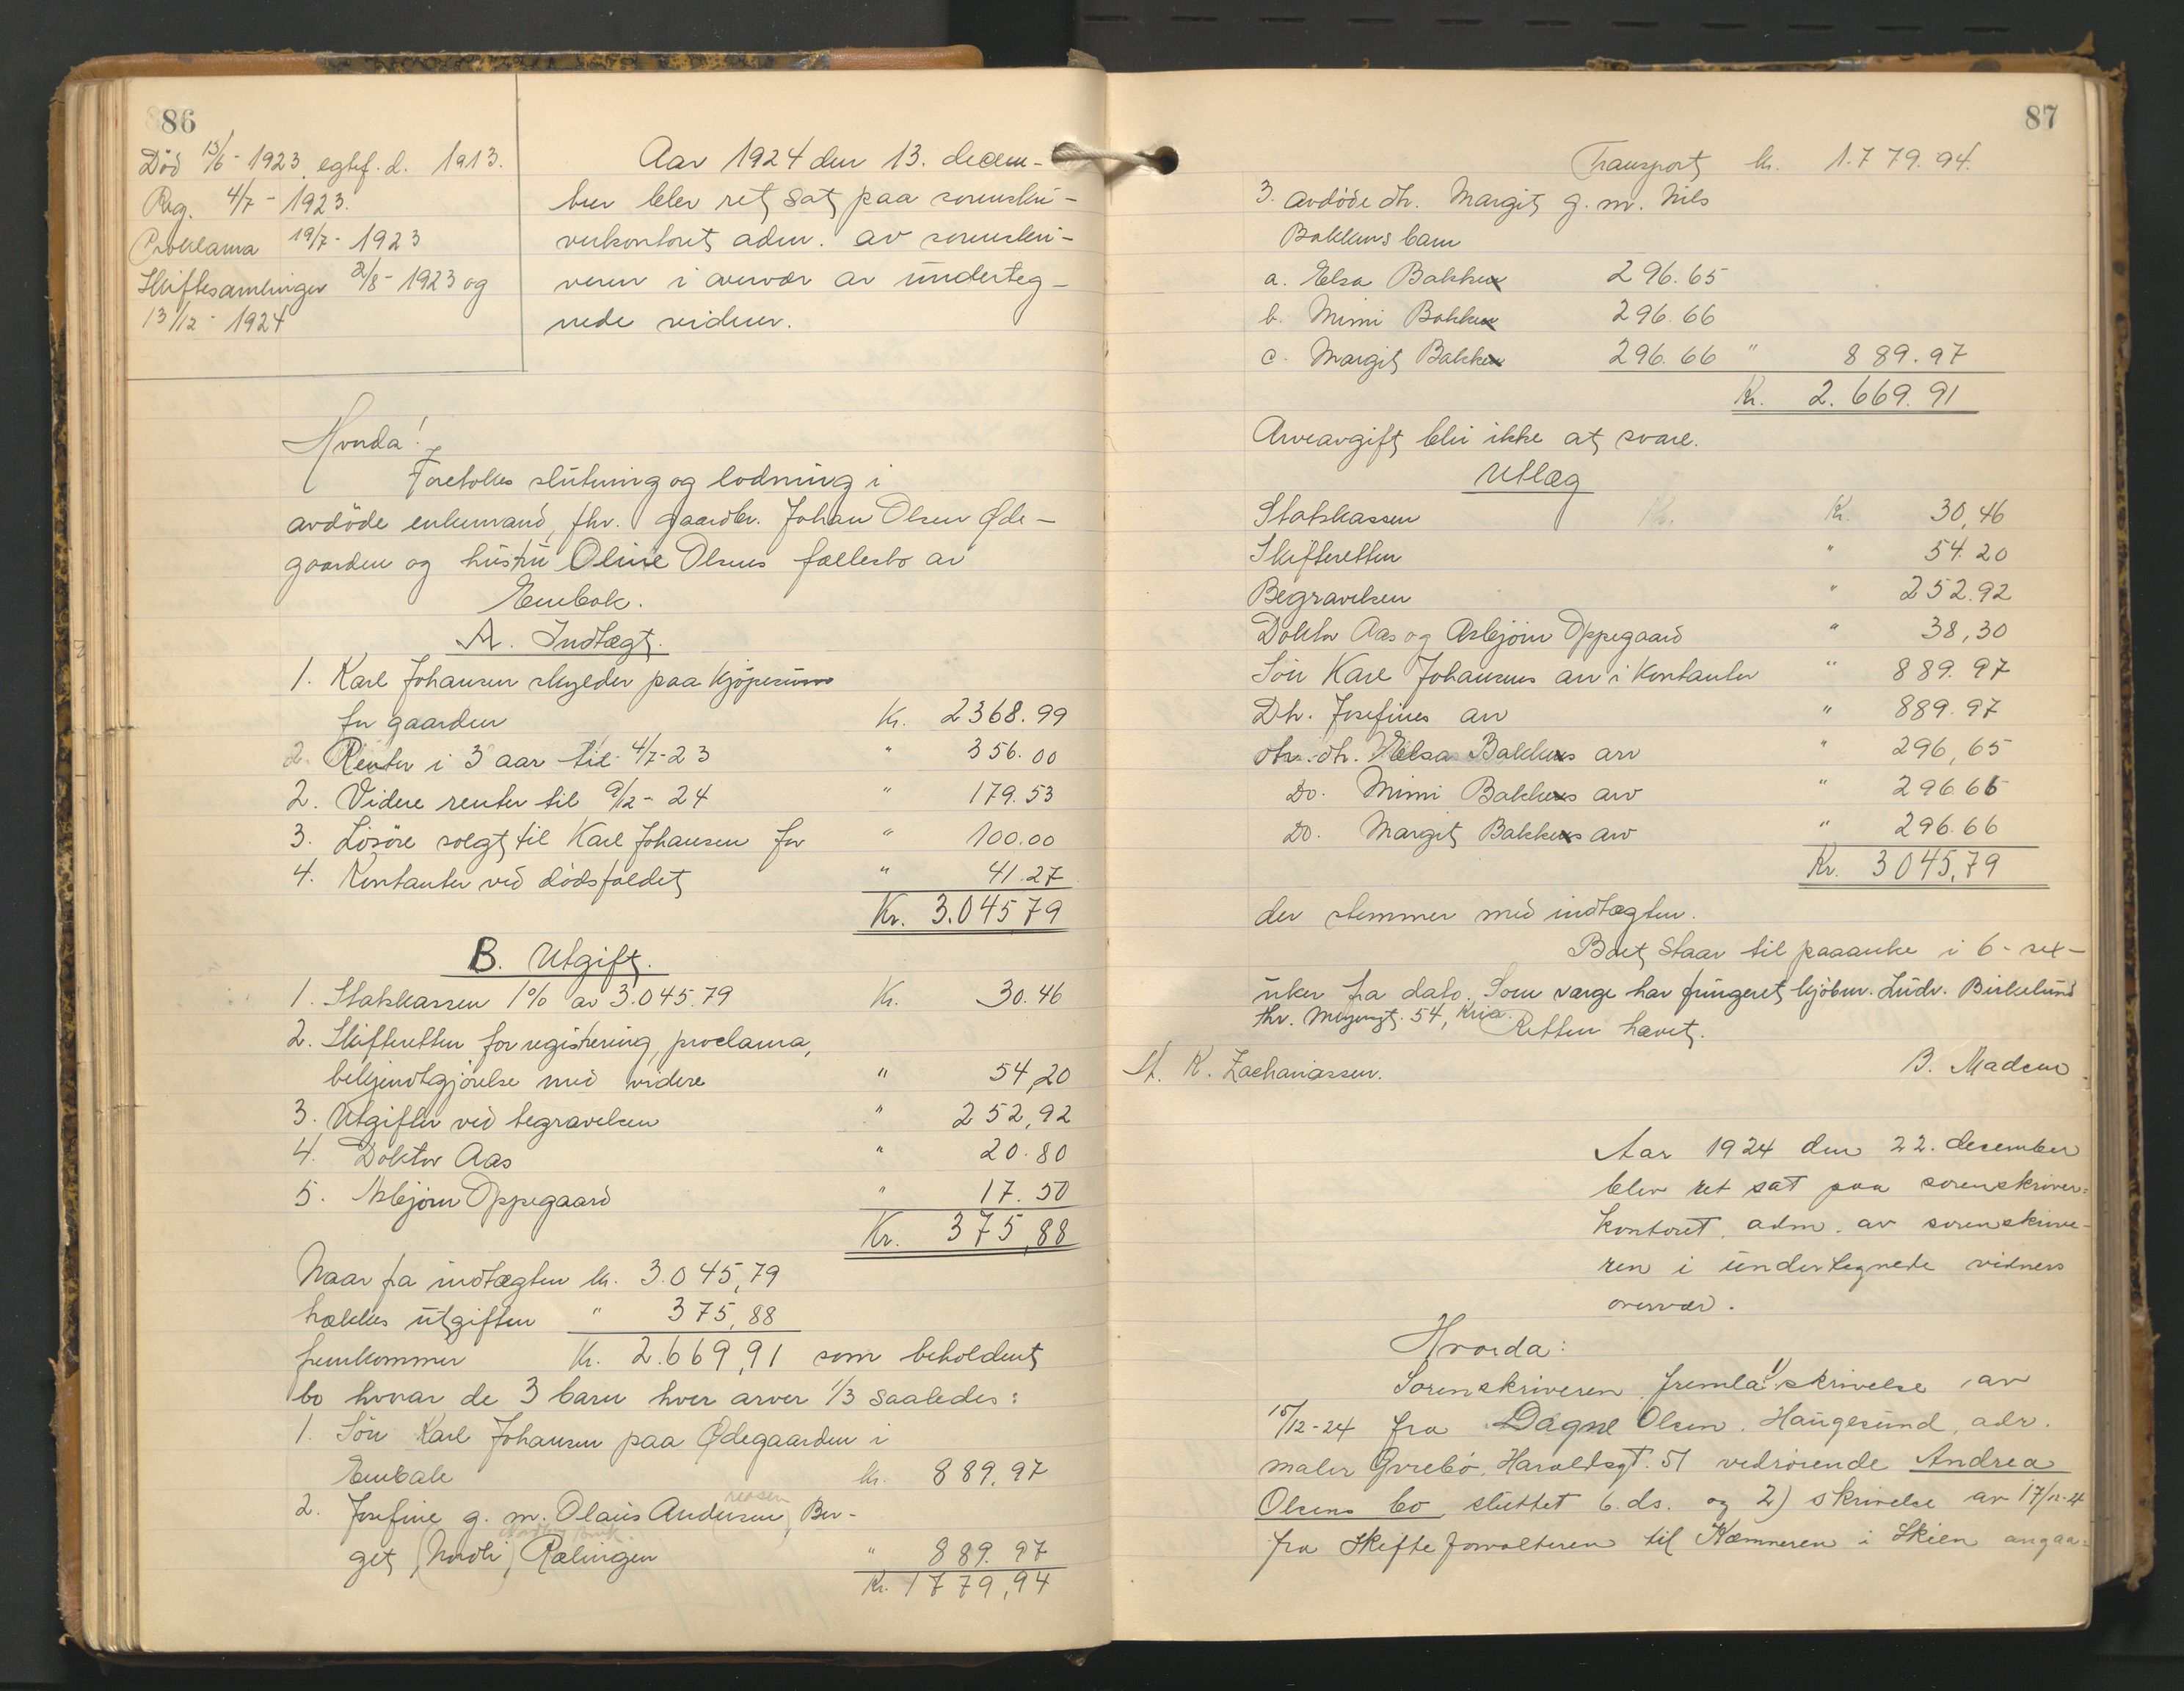 86
Död 15/6 - 1923, egtef. d. 1913.
Reg. 4/7 - 1923.
Proklama 19/7 - 1923
Skiftesamlinger 2/8 - 1923 og
13/12 - 1924
Aar 1924 den 13. decem-
ber blev ret sat paa sorenskri-
verkontoret adm. av sorenskri-
veren i overvær av underteg-
nede vidner.
Hvorda!
Foretokes slutning og lodning i
avdöde enkemand, fhr. gaardbr. Johan Olsen Øde-
gaarden og hustru Oline Olsens fællesbo av
Enebak.
A. Indtægt.
1. Karl Johansen skylder paa kjöpesum
for gaarden Kr. 2368.99
2. Renter i 3 aar til 4/7-23 " 356.00
2. Videre renter til 9/12 - 24 " 179.53
3. Lösöre solgt til Karl Johansen for " 100.00
4. Kontanter ved dödsfaldet " 41.27
Kr. 3.045 79
B. Utgift.
1. Statskassen 1% av 3.045.79 Kr. 30.46
2. Skifteretten for registrering, proclama,
bekjendtgjörelse med videre " 54,20
3. Utgifter ved begravelsen " 252,92
4. Doktor Aas " 20.80
5. Asbjörn Oppegaard " 17.50
Kr. 375,88
Naar fra indtægten kr. 3.045,79
trækkes utgiften " 375,88
fremkommer Kr. 2.669,91 som beholdent
bo hvorav de 3 barn hver arver 1/3 saaledes:
1. Sön Karl Johansen paa Ødegaarden i
Enebak kr. 889.97
2. Josefine g. m. Olaus Andersen, Ber-
get, (Nordli) Rælingen " 889.97
Kr. 1779,94
87
Transport kr. 1.779.94.
3. avdöde dtr. Margit g. m. Nils
Bakkens barn
a. Elsa Bakken 296.65
b. Mimi Bakken 296.66
c. Margit Bakken 296.66 " 889.97
Kr. 2.669.91
Arveavgift blir ikke at svare.
Utlæg
Statskassen Kr. 30,46
Skifteretten " 54.20
Begravelsen " 252.92
Doktor Aas og Asbjörn Oppegaard " 38,30
Sön Karl Johansens arv i kontanter " 889.97
Dtr. Josefines arv " 889.97
dtr. dtr. Elsa Bakkens arv " 296,65
Do. Mimi Bakkens arv " 296.66
Do. Margit Bakkens arv " 296.66
Kr. 3045,79
der stemmer med indtægten.
Boet staar til paaanke i 6 - sex -
uker fra dato. Som værge har fungeret kjöbm. Ludv. Birkelund
Thv. Meyersgt. 54, Kria. Retten hævet.
St. K. Zachariassen. B. Madsen.
Aar 1924 den 22. desember
blev ret sat paa sorenskriver=
kontoret, adm. av sorenskrive-
ren i undertegnede vidners
overvær.
Hvorda:
Sorenskriveren fremla 1) skrivelse av
15/12-24 fra Dagne Olsen, Haugesund, adr.
maler Gvrebö, Haraldsgt. 51 vedrörende Andrea
Olsens bo sluttet 6. ds. og 2) skrivelse av 17/12-24
fra Skifteforvalteren til Kæmneren i Skien angaa=